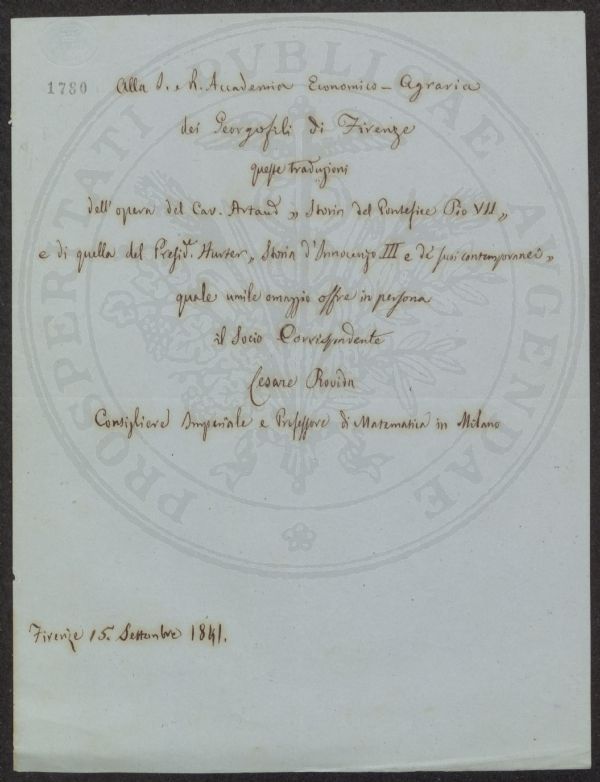 PROSPERITATI PVBLICAE AVGENDAE
1780
Alla I. e R. Accademia Economico - Agraria
dei Georgofili di Firenze
queste traduzioni
dell'opera del Cav. Artaud „ Storia del Pontefice Pio VII „
e di quella del Presid.t Hurter „ Storia d'Innocenzo III e de' suoi contemporanei „
quale umile omaggio offre in persona
il Socio Corrispondente
Cesare Rovida
Consigliere Imperiale e Professore di Matematica in Milano
Firenze 15. Settembre 1841.